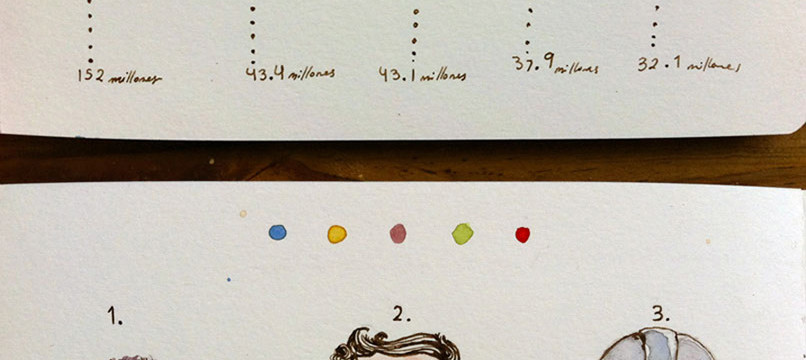 152 millones 43.4 millones 43.1 millones 37.9 millones 32.1 millones
1. 2. 3.